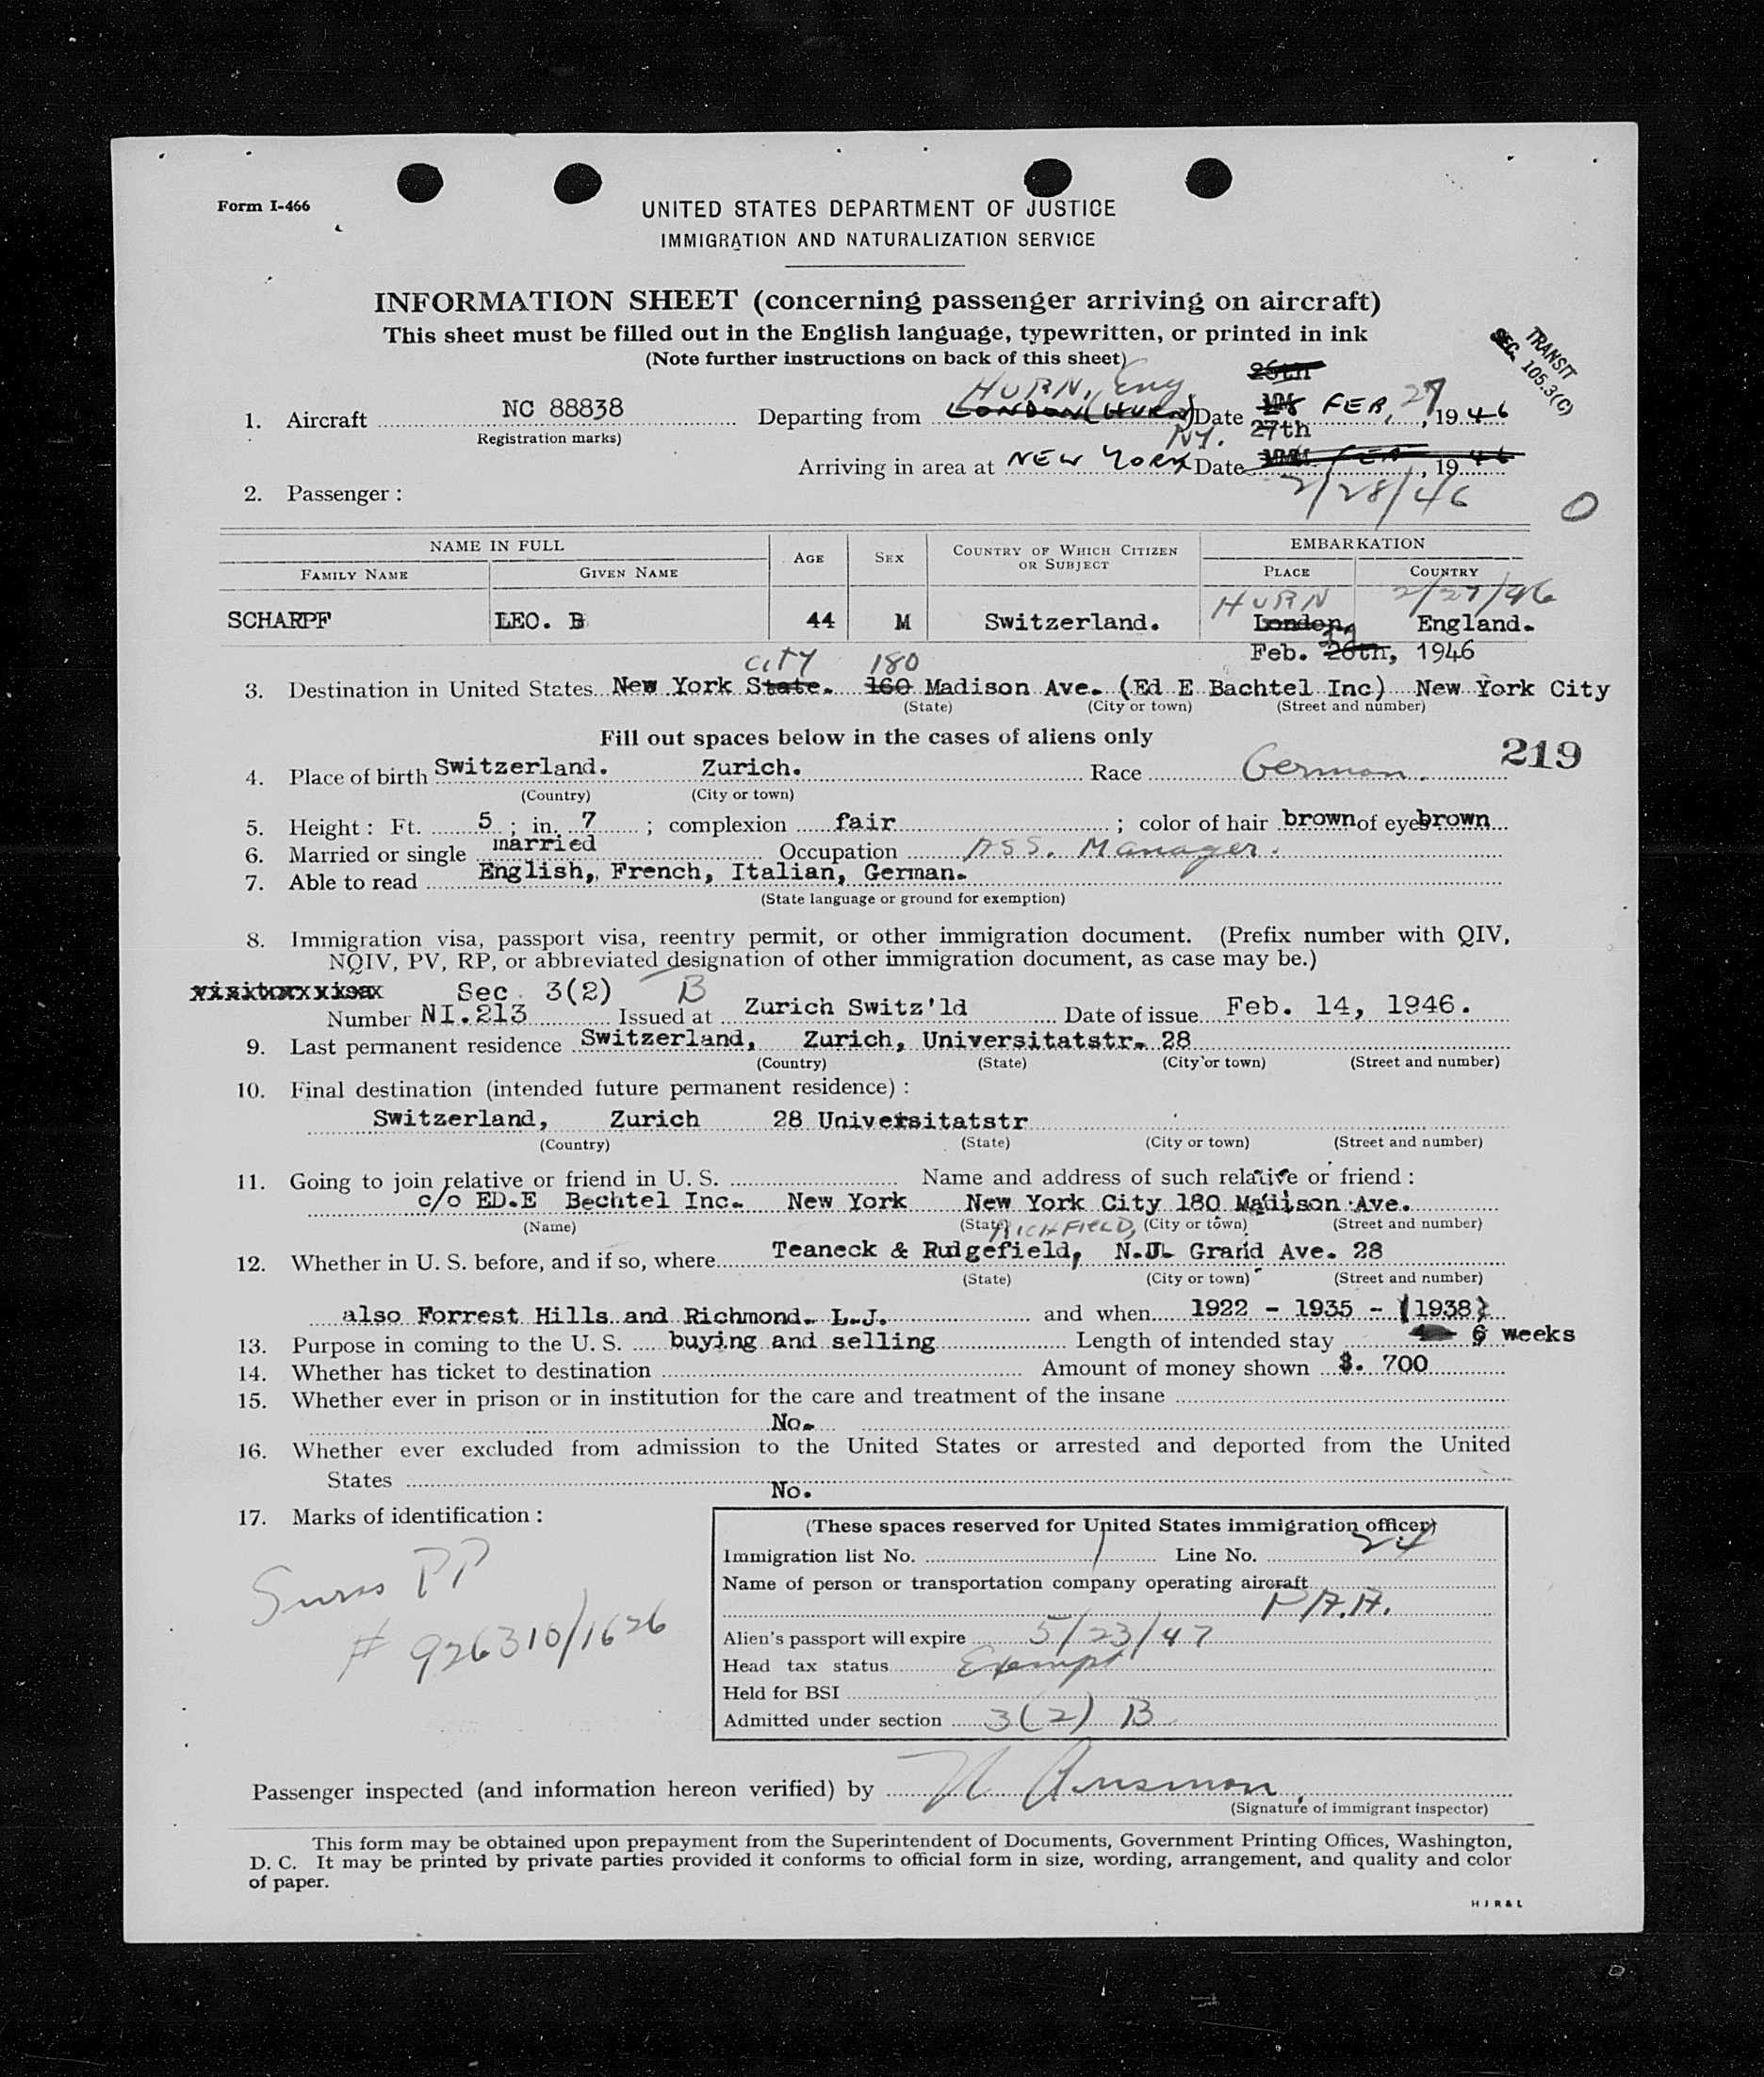 Form I-466
UNITED STATES DEPARTMENT OF JUSTICE
IMMIGRATION AND NATURALIZATION SERVICE
INFORMATION SHEET (concerning passenger arriving on aircraft)
This sheet must be filled out in the English language, typewritten, or printed in ink
(Note further instructions on back of this sheet)
TRANSIT
SEC. 105.3(C)
HURN, Eng 26th
1. Aircraft NC 88838 Departing from LONDON (HURN) Date FEB, 27, 1946
(Registration marks) NY. 27th
Arriving in area at NEW YORK Date FEB, 1946
2. Passenger : 2/28/46 O
NAME IN FULL AGE SEX COUNTRY OF WHICH CITIZEN OR SUBJECT EMBARKATION
FAMILY NAME GIVEN NAME PLACE COUNTRY
HURN 2/27/46
SCHARPF LEO. B 44 M Switzerland. London, England.
Feb. 26th, 1946
CITY 180
3. Destination in United States New York State. 160 Madison Ave. (Ed E Bachtel Inc) New York City
(State) (City or town) (Street and number)
Fill out spaces below in the cases of aliens only
219
4. Place of birth Switzerland. Zurich. Race German.
(Country) (City or town)
5. Height : Ft. 5 ; in. 7 ; complexion fair ; color of hair brown of eyes brown
6. Married or single married Occupation ASS. Manager.
7. Able to read English, French, Italian, German.
(State language or ground for exemption)
8. Immigration visa, passport visa, reentry permit, or other immigration document. (Prefix number with QIV,
NQIV, PV, RP, or abbreviated designation of other immigration document, as case may be.)
Sec 3(2) B
Number NI.213 Issued at Zurich Switz'ld Date of issue Feb. 14, 1946.
9. Last permanent residence Switzerland, Zurich, Universitatstr. 28
(Country) (State) (City or town) (Street and number)
10. Final destination (intended future permanent residence) :
Switzerland, Zurich 28 Universitatstr
(Country) (State) (City or town) (Street and number)
11. Going to join relative or friend in U. S. Name and address of such relative or friend :
c/o ED.E Bechtel Inc. New York New York City 180 Madison Ave.
(Name) (State) (City or town) (Street and number)
RICHFIELD,
12. Whether in U. S. before, and if so, where Teaneck & Rudgefield, N.J. Grand Ave. 28
(State) (City or town) (Street and number)
also Forrest Hills and Richmond. L.J. and when 1922 - 1935 - (1938)
13. Purpose in coming to the U. S. buying and selling Length of intended stay 6 weeks
14. Whether has ticket to destination Amount of money shown $. 700
15. Whether ever in prison or in institution for the care and treatment of the insane
No.
16. Whether ever excluded from admission to the United States or arrested and deported from the United
States
No.
17. Marks of identification :
Swiss PP
# 926310/1626
(These spaces reserved for United States immigration officer)
Immigration list No. 1 Line No. 24
Name of person or transportation company operating aircraft
P.A.A.
Alien's passport will expire 5/23/47
Head tax status Exempt
Held for BSI
Admitted under section 3(2) B
Passenger inspected (and information hereon verified) by
(Signature of immigrant inspector)
This form may be obtained upon prepayment from the Superintendent of Documents, Government Printing Offices, Washington,
D. C. It may be printed by private parties provided it conforms to official form in size, wording, arrangement, and quality and color
of paper.
HJR&L